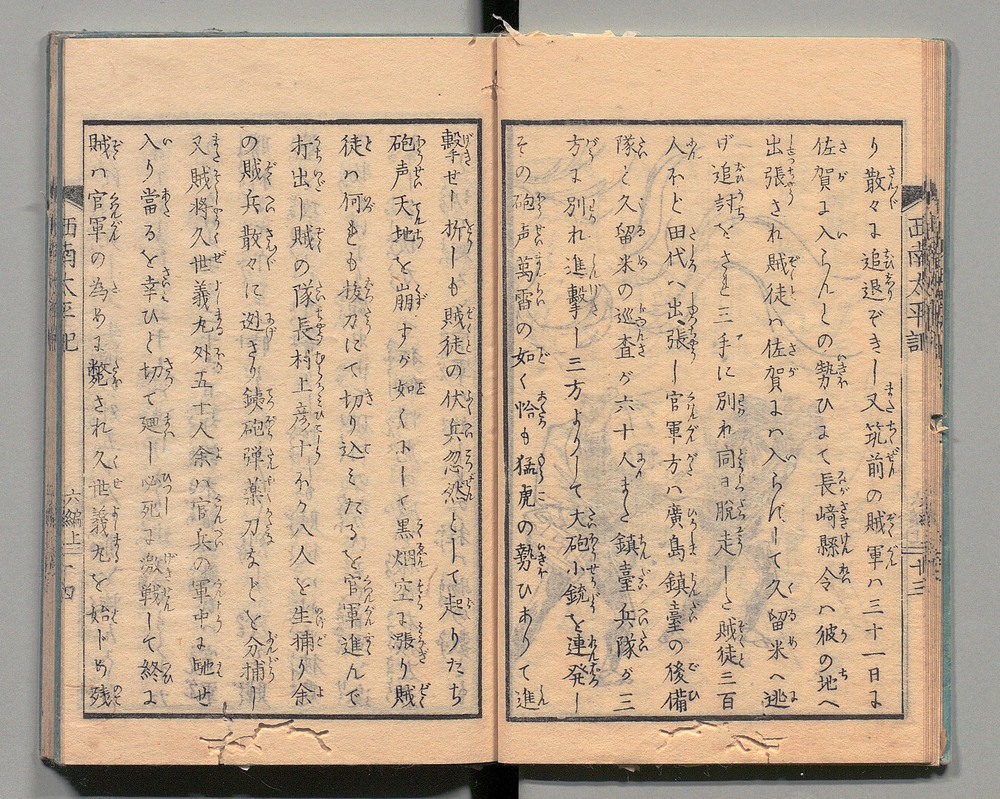 西南太平記
り散々に追退ぞきし又筑前の賊軍ハ三十一日に
佐賀に入らんとの勢ひにて長﨑縣令ハ彼の地へ
出張され賊徒ハ佐賀にハ入らずして久留米へ逃
げ追討をさと三手に別れ同日脱走した賊徒三百
人不と田代へ出張し官軍方ハ廣島鎮臺の後備
隊と久留米の巡査が六十人また鎮臺兵隊が三
方に別れ進擊し三方よりして大砲小銃を連発し
その砲声萬雷の如く恰も猛虎の勢ひありて進
擊せし折しも賊徒の伏兵忽然として起りたち
砲声天地を崩すが如くにして黒烟空に漲り賊
徒ハ何れも抜刀にて切り込みたるを官軍進んで
打出し賊の隊長村上彦十外八人を生捕り余
の賊兵散々に迯さり銕砲弾薬刀などを分捕し
又賊将久世義丸外五十人余ハ官兵の軍中に馳せ
入り當るを幸ひと切て廻し必死に激戦して終に
賊ハ官軍の為めに斃され久世義丸を始トめ残
西南太平記
六編上
十四